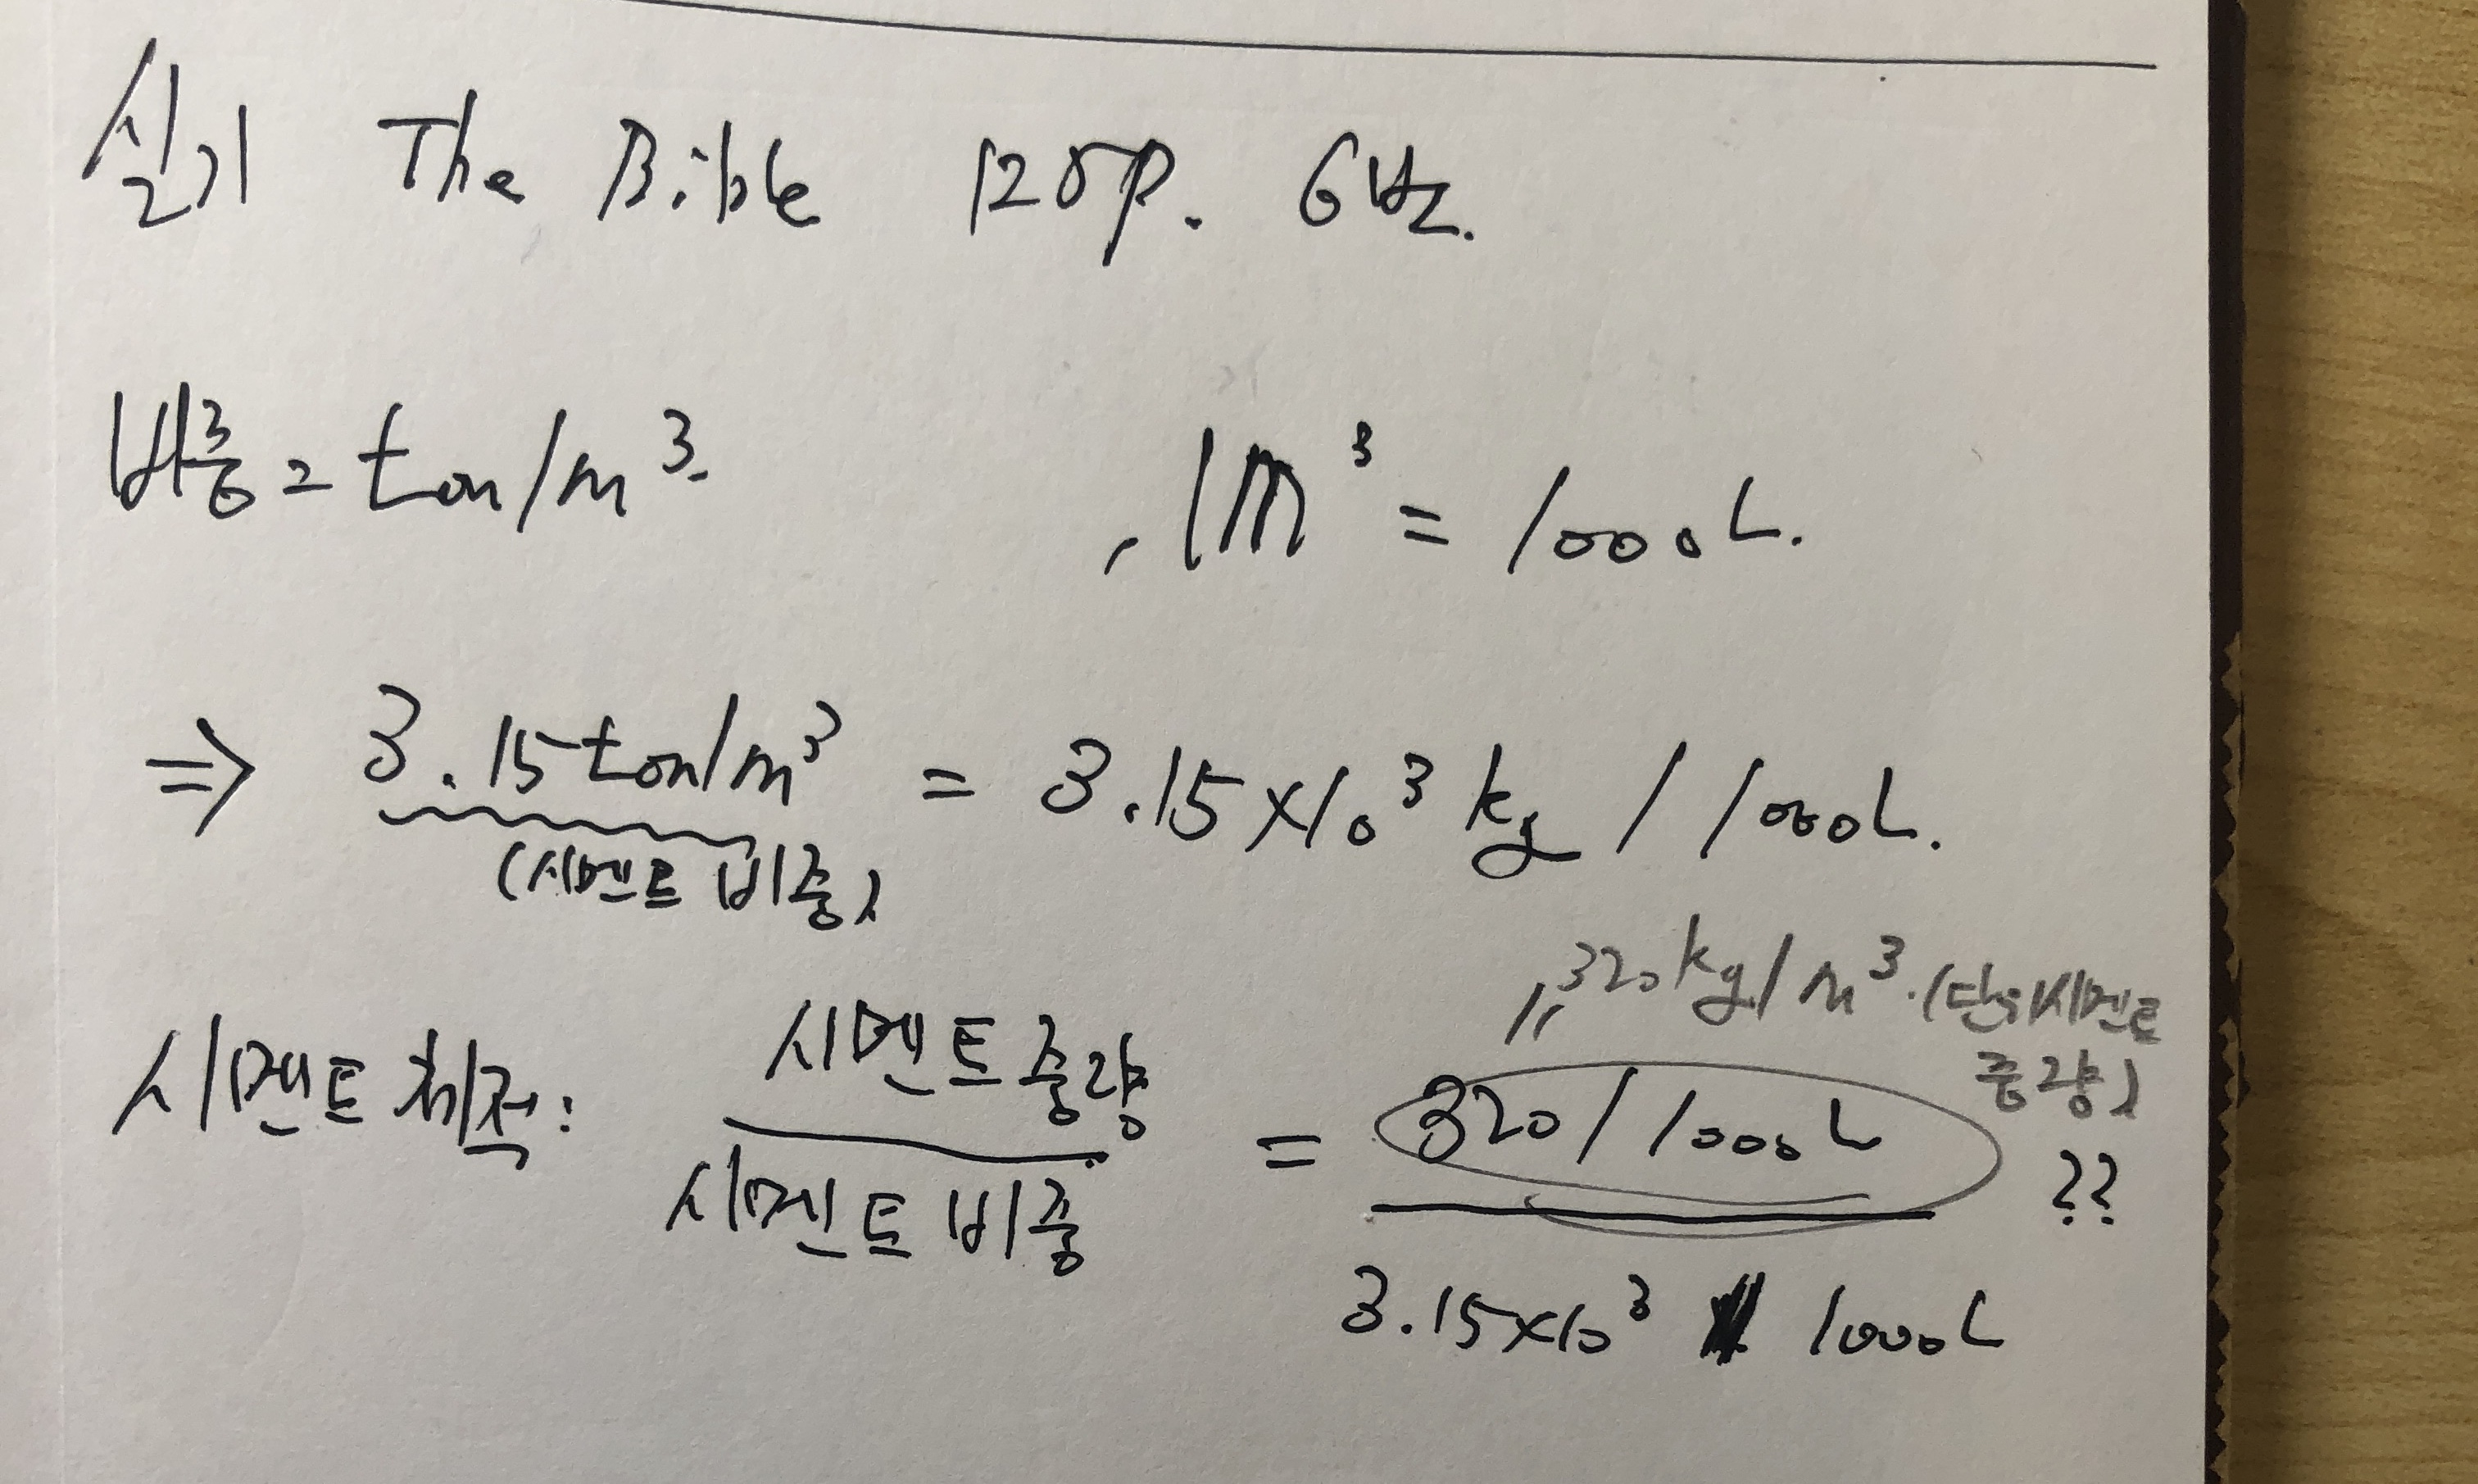 실기 The Bible 125p. 6번.
비중 = ton/m³. , 1m³ = 1000L.
⇒ 3.15ton/m³ = 3.15×10³ kg / 1000L.
(시멘트 비중)
〃 320kg/m³. (단위시멘트
중량)
시멘트 체적: 시멘트 중량 / 시멘트 비중 = 320/1000L / 3.15×10³ 1000L ??